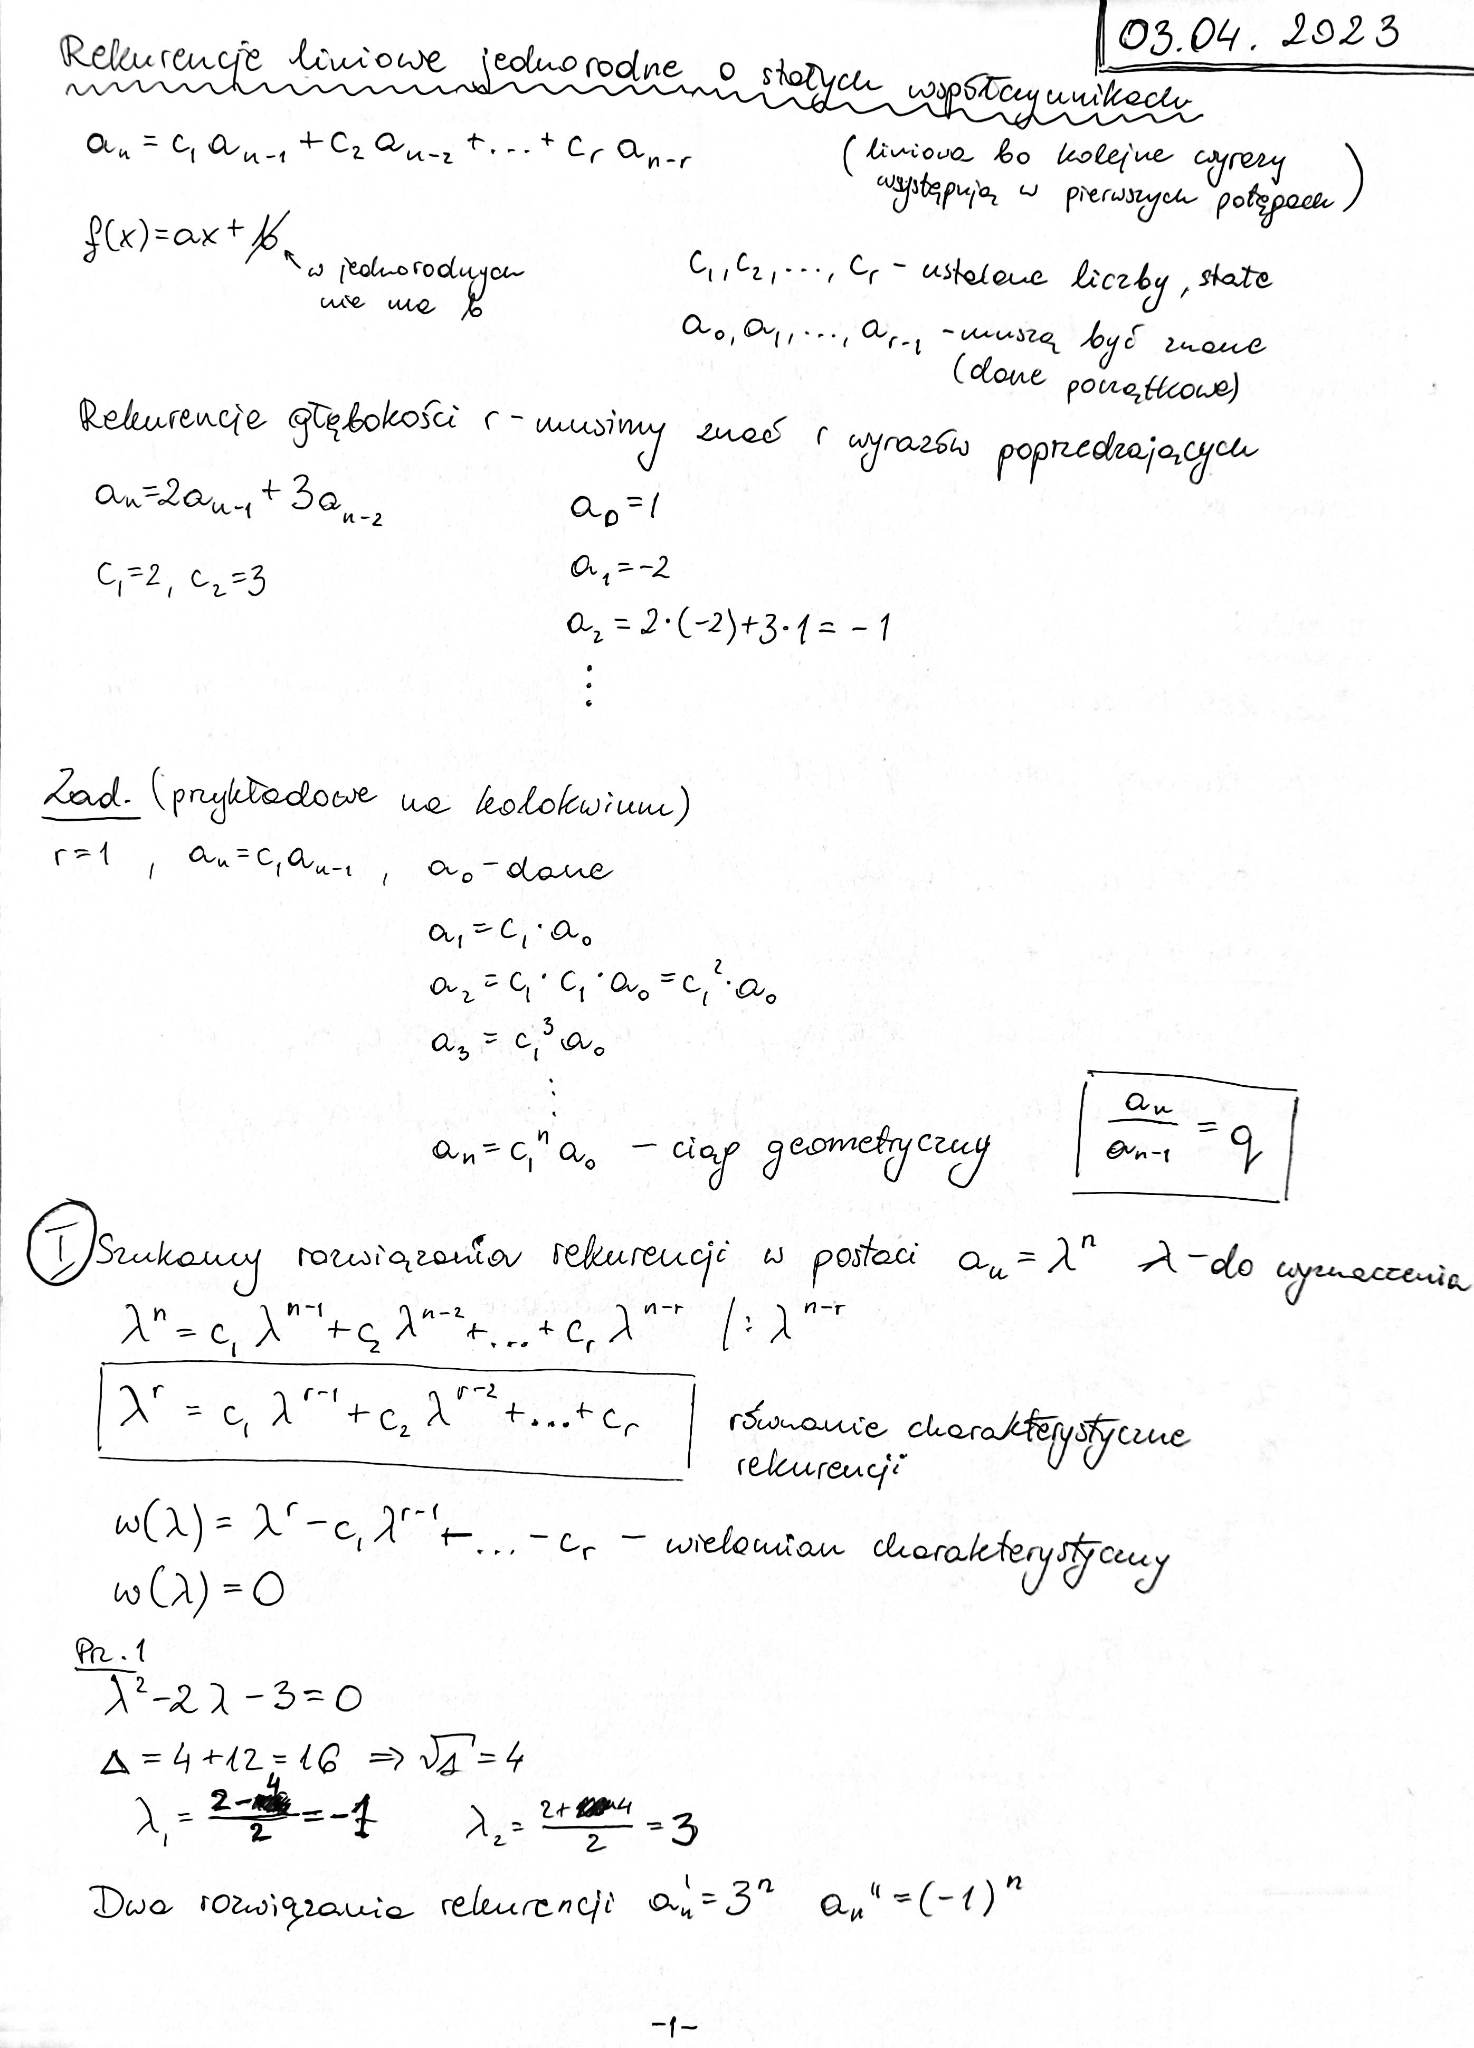 03.04.2023
Rekurencje liniowe jednorodne o stałych współczynnikach
aₙ = c₁ aₙ₋₁ + c₂ aₙ₋₂ + ... + cᵣ aₙ₋ᵣ
(liniowa bo kolejne wyrazy
występują w pierwszych potęgach)
f(x) = ax + b
w jednorodnych
nie ma b
c₁, c₂, ..., cᵣ - ustalone liczby, stałe
a₀, a₁, ..., aᵣ₋₁ - muszą być znane
(dane początkowe)
Rekurencje głębokości r - musimy znać r wyrazów poprzedzających
aₙ = 2aₙ₋₁ + 3aₙ₋₂
a₀ = 1
c₁ = 2, c₂ = 3
a₁ = -2
a₂ = 2·(-2) + 3·1 = -1
⋮
Zad. (przykładowe na kolokwium)
r = 1, aₙ = c₁aₙ₋₁, a₀ - dane
a₁ = c₁·a₀
a₂ = c₁·c₁·a₀ = c₁²·a₀
a₃ = c₁³ a₀
⋮
aₙ = c₁ⁿ a₀ - ciąg geometryczny
aₙ/aₙ₋₁ = q
I Szukamy rozwiązania rekurencji w postaci aₙ = λⁿ λ - do wyznaczenia
λⁿ = c₁ λⁿ⁻¹ + c₂ λⁿ⁻² + ... + cᵣ λⁿ⁻ʳ /: λⁿ⁻ʳ
λʳ = c₁ λʳ⁻¹ + c₂ λʳ⁻² + ... + cᵣ
równanie charakterystyczne
rekurencji
w(λ) = λʳ - c₁ λʳ⁻¹ - ... - cᵣ - wielomian charakterystyczny
w(λ) = 0
Prz. 1
λ² - 2λ - 3 = 0
Δ = 4 + 12 = 16 ⇒ √Δ = 4
λ₁ = (2-4)/2 = -1 λ₂ = (2+4)/2 = 3
Dwa rozwiązania rekurencji aₙ' = 3ⁿ aₙ'' = (-1)ⁿ
-1-